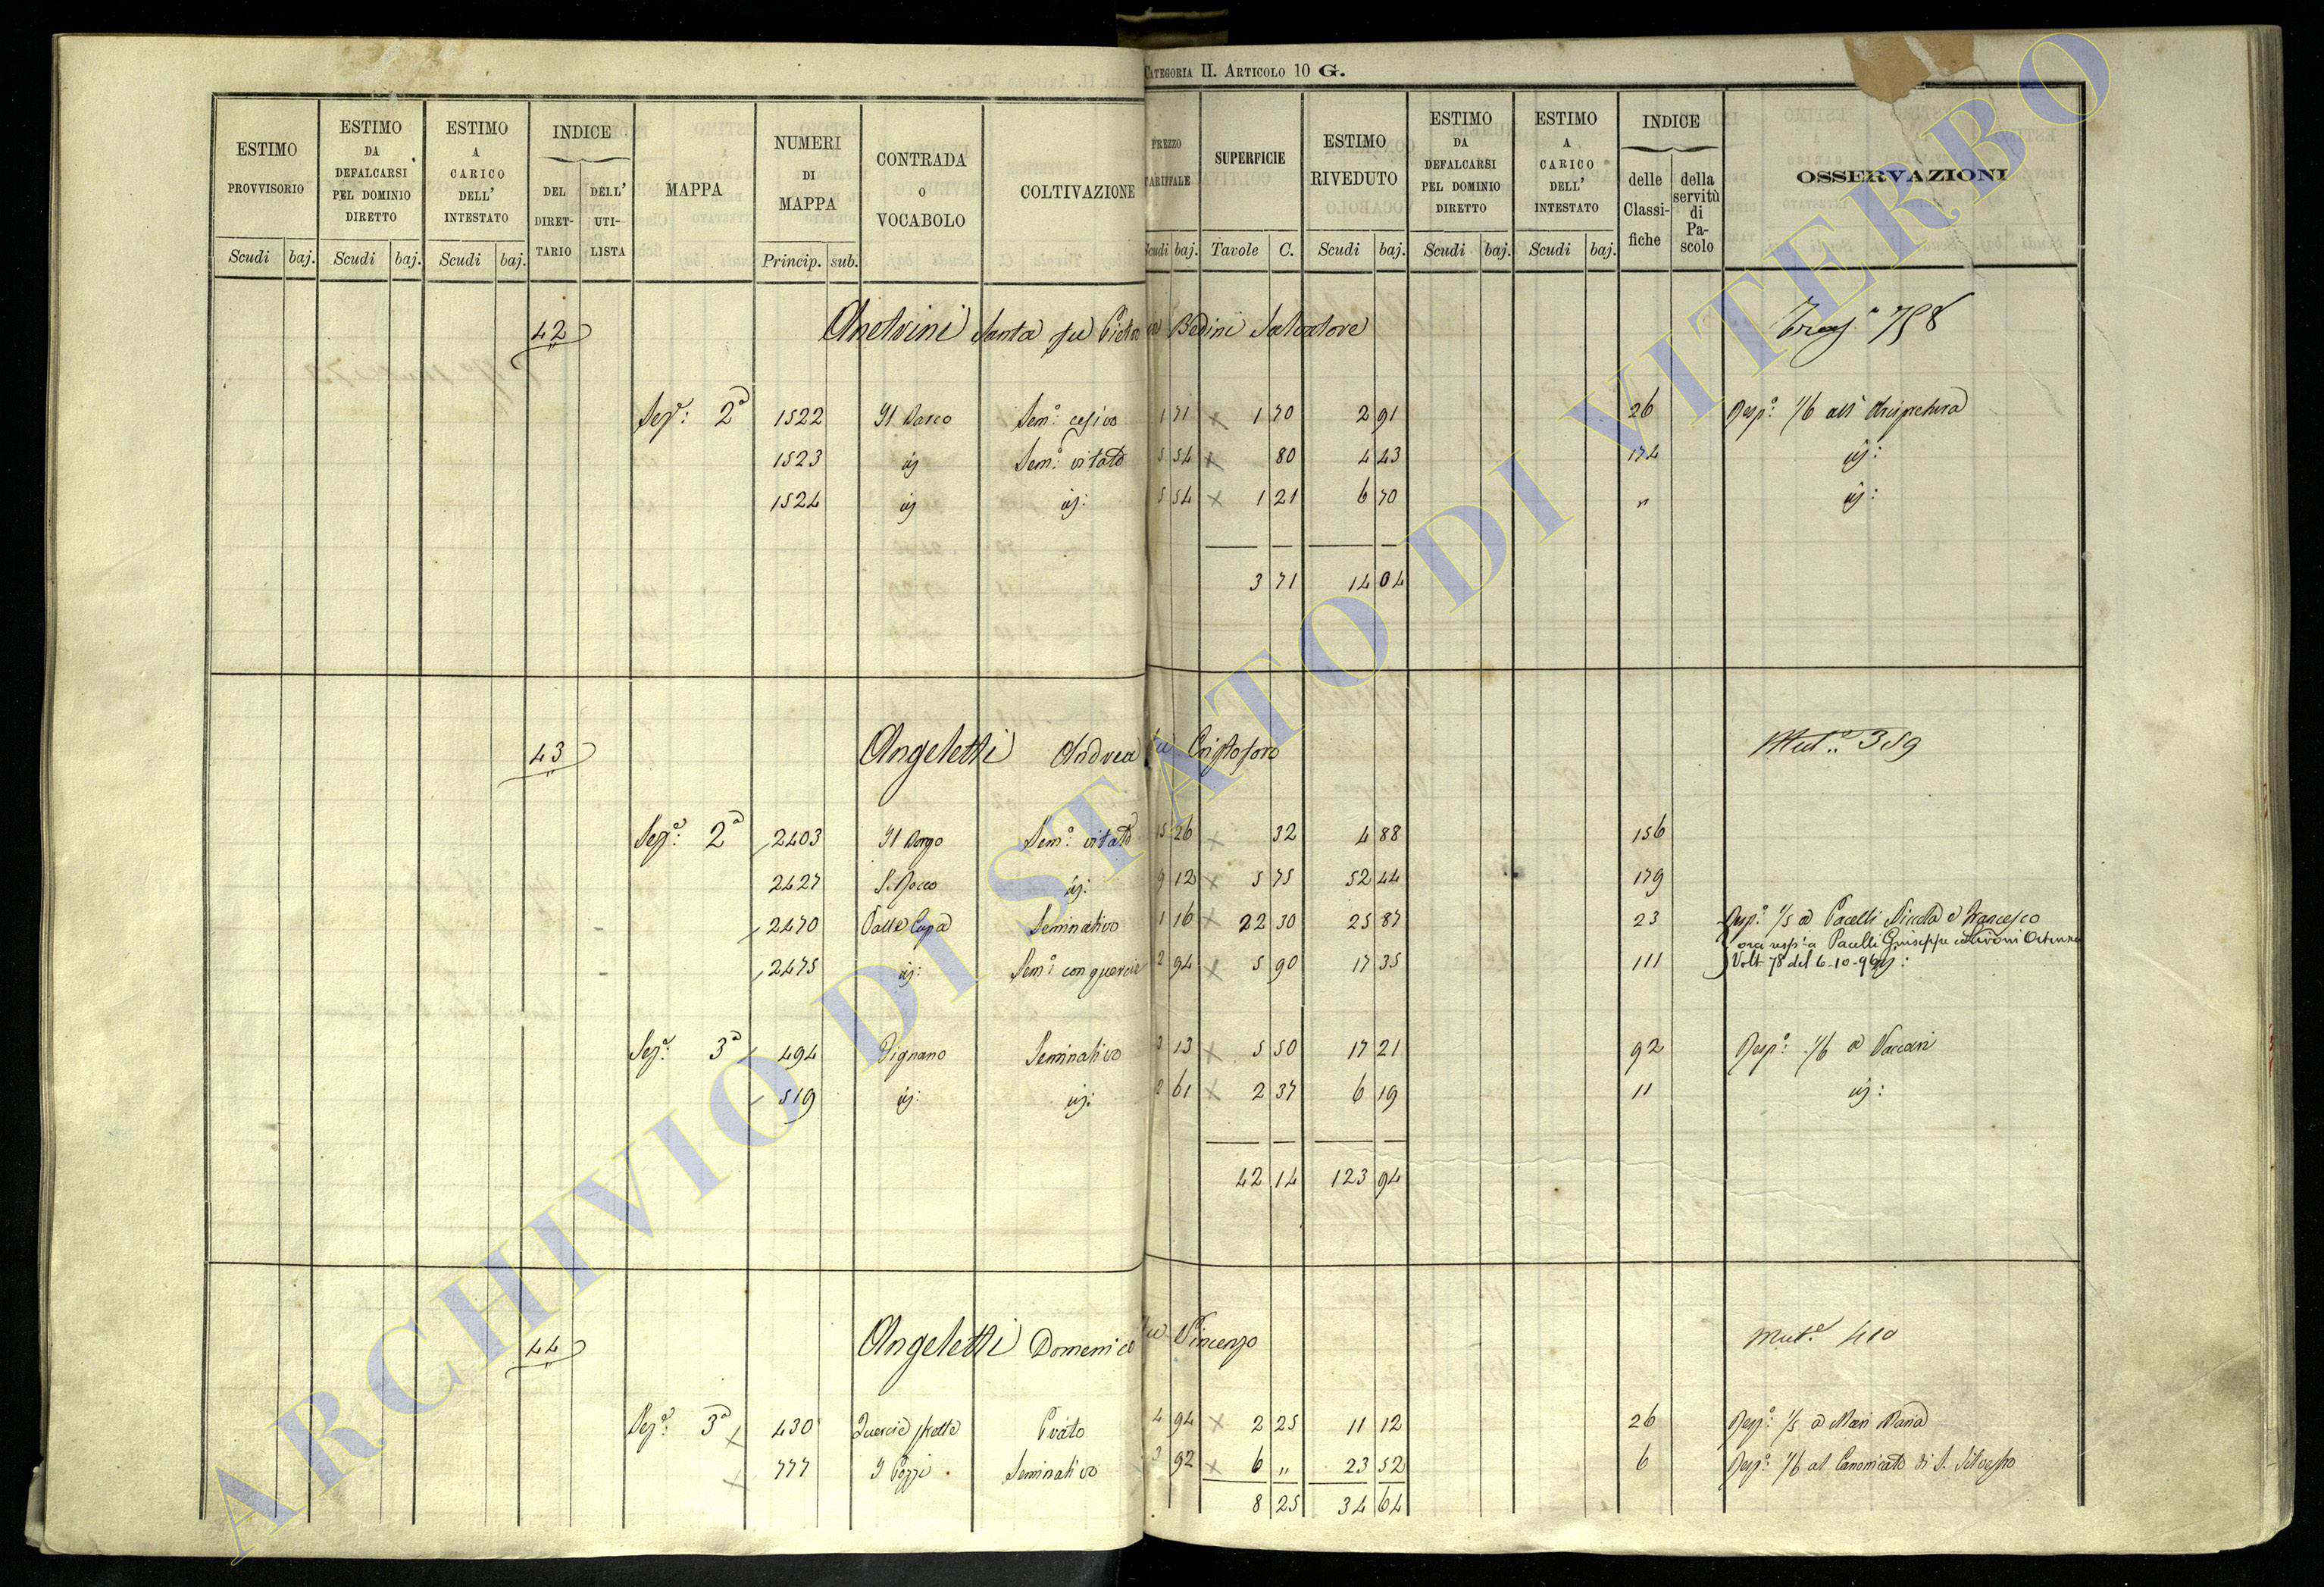 CATEGORIA II. ARTICOLO 10 G.
ESTIMO PROVVISORIO
Scudi baj.
ESTIMO DA DEFALCARSI PEL DOMINIO DIRETTO
Scudi baj.
ESTIMO A CARICO DELL' INTESTATO
Scudi baj.
INDICE
DEL DIRET-TARIO
DELL' UTI-LISTA
MAPPA
NUMERI DI MAPPA
Princip. sub.
CONTRADA O VOCABOLO
COLTIVAZIONE
PREZZO TARIFFALE
Scudi baj.
SUPERFICIE
Tavole C.
ESTIMO RIVEDUTO
Scudi baj.
ESTIMO DA DEFALCARSI PEL DOMINIO DIRETTO
Scudi baj.
ESTIMO A CARICO DELL' INTESTATO
Scudi baj.
INDICE
delle Classi-fiche
della servitù di Pa-scolo
OSSERVAZIONI
42 Anetrini Santa fu Pietro in Bedini Salvatore 758
Sezᵉ: 2ª 1522 Il Barco Semº: cesivo 1 71 x 1 70 2 91 26 Respº: 1/6 all'
1523 id Semº: vitato 5 54 x 80 4 43 174 id:
1524 id id: 5 54 x 1 21 6 70 " id:
3 71 14 04
43 Angeletti Andrea fu Cristoforo Mutª: 359
Sezᵉ: 2ª 2403 Il Borgo Semº: vitato 15 26 x 32 4 88 156
2427 S. Rocco id: 9 12 x 5 75 52 44 179
2470 Valle Cupa Seminativo 1 16 x 22 30 25 87 23 Respº: 1/5 a Pacelli Niccola e Francesco
ora respᵃ a Pacelli Giuseppe
2475 id: Semº: con quercie 2 94 x 5 90 17 35 111 Volt. 78 del 6-10-96 id:
Sezᵉ: 3ª 494 Vignano Seminativo 3 13 x 5 50 17 21 92 Respº: 1/6 a Vaccari
519 id: id: 2 61 x 2 37 6 19 11 id:
42 14 123 94
44 Angeletti Domenico fu Vincenzo Mutª 410
Sezᵉ: 3ª x 430 Quercie strette Prato 4 94 x 2 25 11 12 26 Respº: 1/5 a Mari Maria
x 777 I Pozzi Seminativo 3 92 x 6 " 23 52 6 Respº: 1/6 al Canonicato di S. Silvestro
8 25 34 64
ARCHIVIO DI STATO DI VITERBO